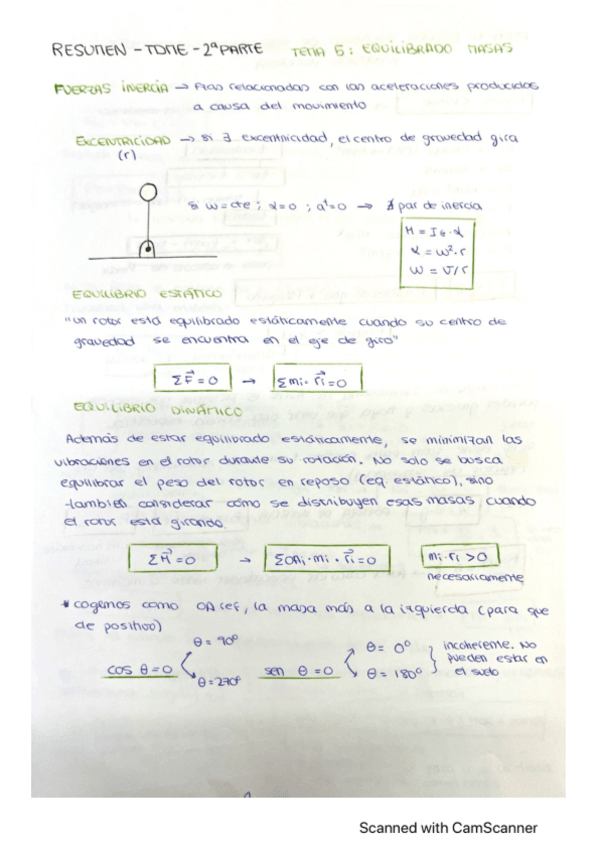 RESUMEN - TDME - 2ª PARTE TEMA 5: EQUILIBRADO MASAS
FUERZAS INERCIA → Fzas relacionadas con las aceleraciones producidas
a causa del movimiento
EXCENTRICIDAD → si ∃ excentricidad, el centro de gravedad gira
(r)
si ω=cte ; α=0 ; aᵗ=0 → ∄ par de inercia
M = I_G·α
α = ω²·r
ω = V/r
EQUILIBRIO ESTÁTICO
"un rotor está equilibrado estáticamente cuando su centro de
gravedad se encuentra en el eje de giro"
ΣF⃗ = 0 → Σmi·r⃗i = 0
EQUILIBRIO DINÁMICO
Además de estar equilibrado estáticamente, se minimizan las
vibraciones en el rotor durante su rotación. No solo se busca
equilibrar el peso del rotor en reposo (eq. estático), sino
también considerar cómo se distribuyen esas masas cuando
el rotor está girando.
ΣM⃗ = 0 → Σoai·mi·r⃗i = 0 mi·ri > 0
necesariamente
* cogemos como OA ref, la masa más a la izquierda (para que
de positivo)
cos θ = 0 θ = 90º θ = 270º sen θ = 0 θ = 0º θ = 180º incoherente. No
pueden estar en
el suelo
Scanned with CamScanner